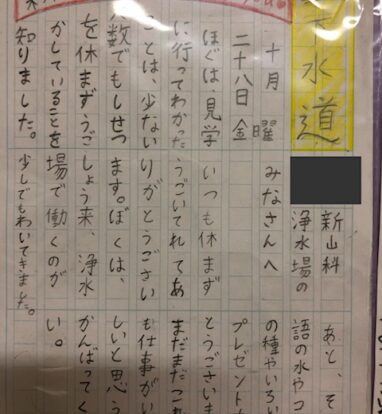 水道
十月
二十八日 金曜
ぼくは、見学
に行ってわかった
ことは、少ない
人数でもしせつ
を休まずうご
かしていることを
知りました。
新山科
浄水場の
みなさんへ
いつも休まず
うごいてれてあ
りがとうござい
ます。ぼくは、
しょう来、浄水
場で働くのが
少しでもわいてきました。
あと、そ
語の水やコ
の種やいろい
プレゼント
とうございま
まだまだこれ
も仕事がい
しいと思う
かんばってく
い。